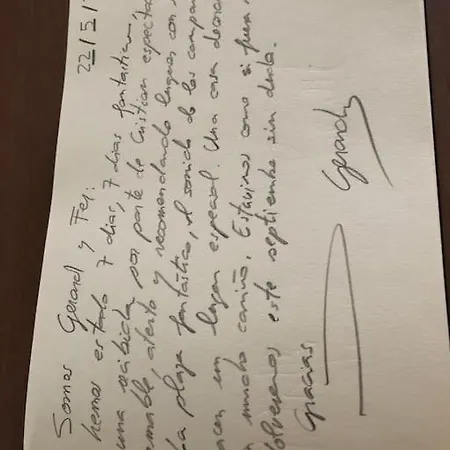 22/5/
Somos Gerard y Fey:
hemos estado 7 días, 7 días fantásticos,
una acibida por parte de Cristian espectac
amable, atento y recomendando lugares con
la plaza fantástico, el sonido de las campan
hacen un lugar especial. Una casa decora
mucho cariño. Estuvimos como si fuera
volveremos este septiembre sin duda.
Gracias.
Gerard